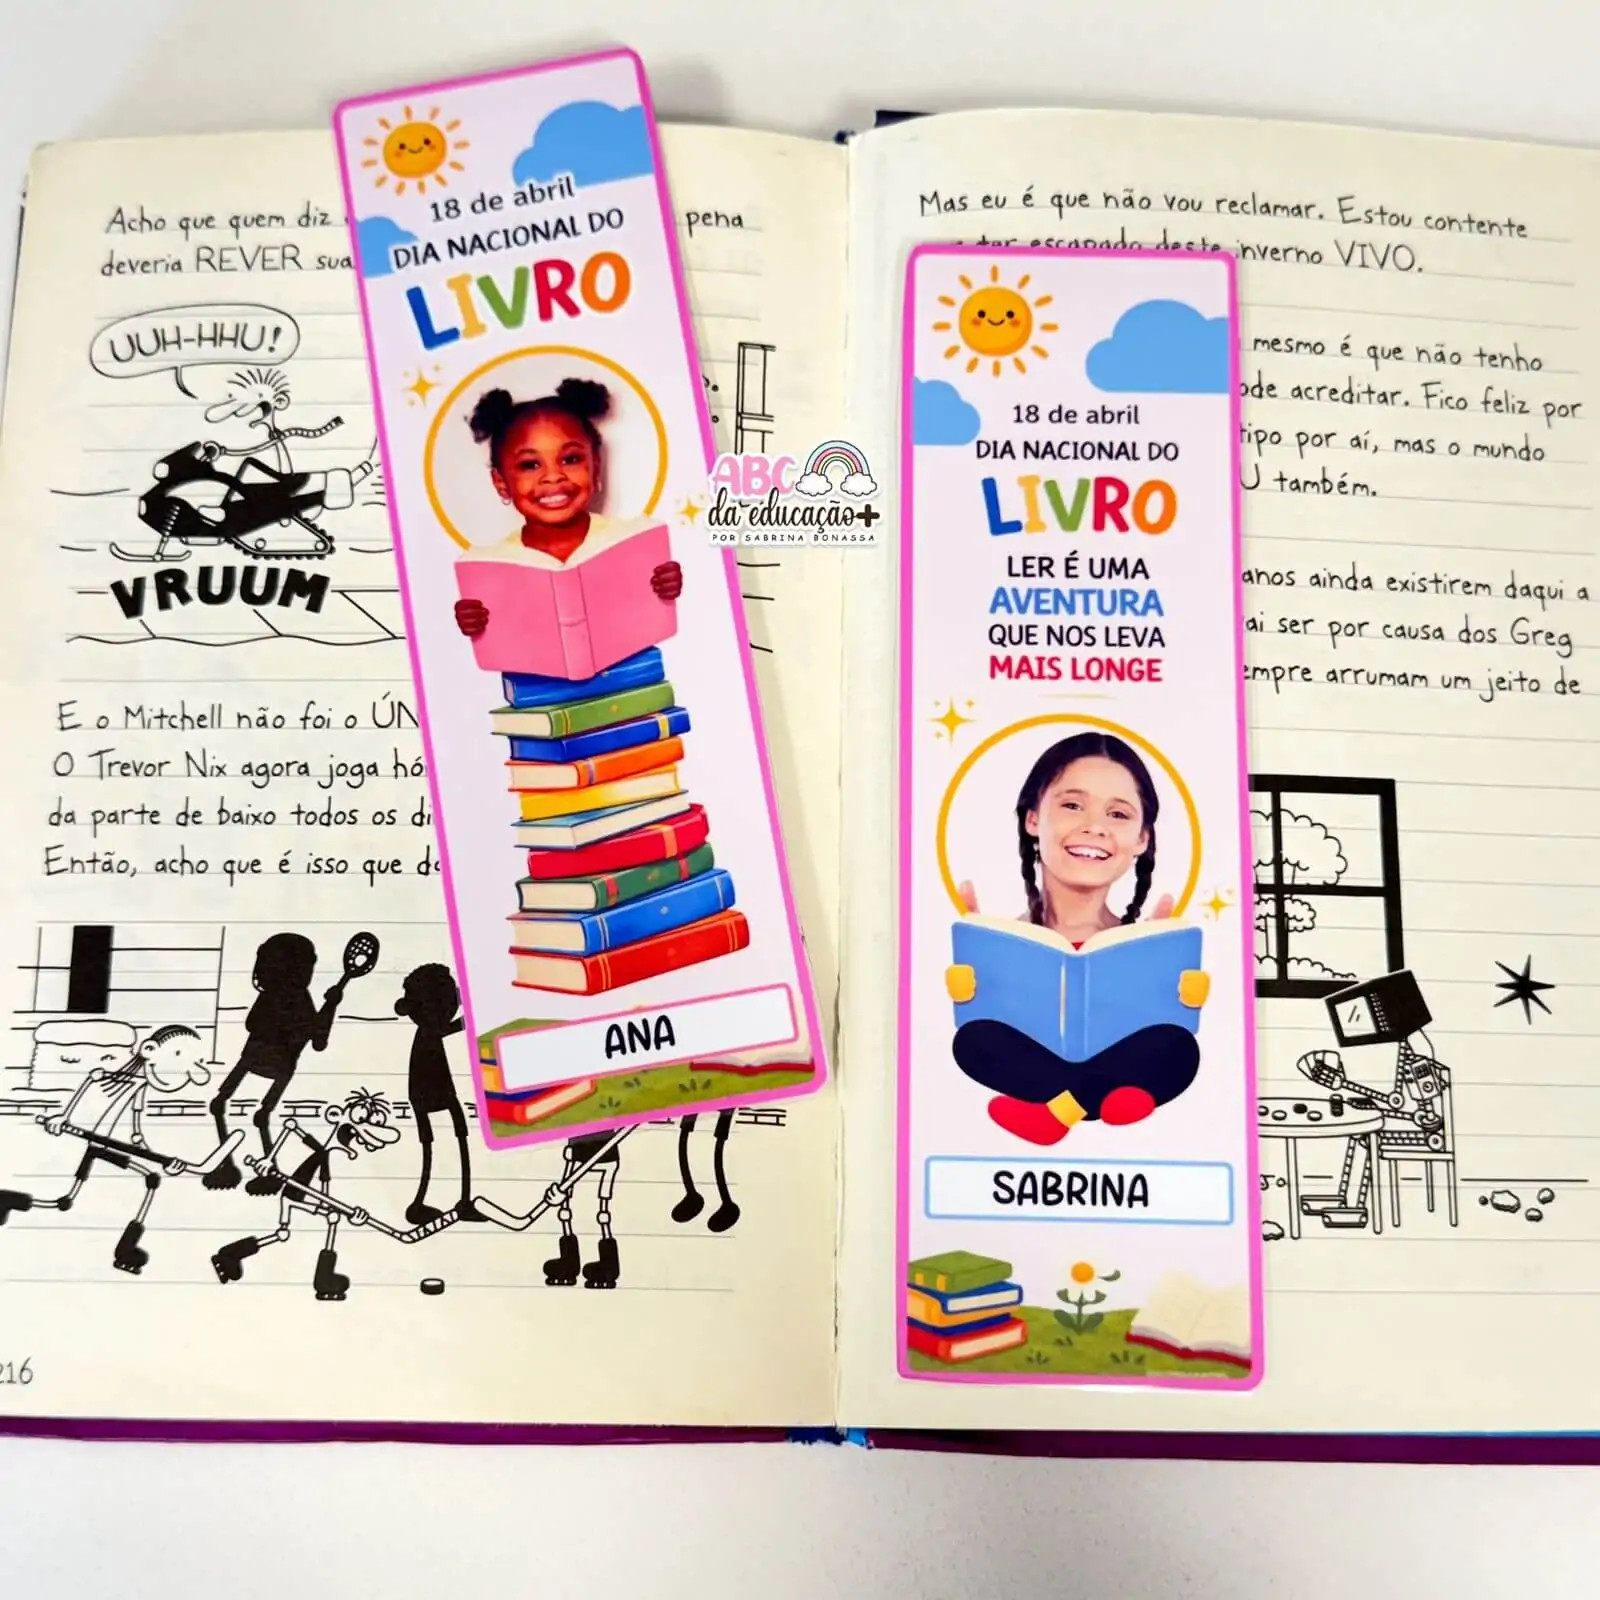 Acho que quem diz
pena
deveria REVER sua
UUH-HHU!
VRUUM
E o Mitchell não foi o
O Trevor Nix agora joga
da parte de baixo todos os
Então, acho que é isso que
216
18 de abril
DIA NACIONAL DO
LIVRO
ANA
ABC
da educação+
POR SABRINA BONASSA
Mas eu é que não vou reclamar. Estou contente
escapado deste inverno VIVO.
mesmo é que não tenho
acreditar. Fico feliz por
tipo por aí, mas o mundo
também.
18 de abril
DIA NACIONAL DO
LIVRO
LER É UMA
AVENTURA
QUE NOS LEVA
MAIS LONGE
SABRINA
anos ainda existirem daqui a
ser por causa dos Greg
arrumam um jeito de